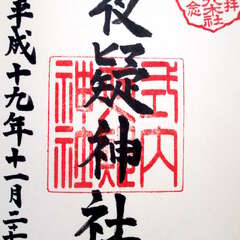 夜疑神社
平成十九年十一月二十
式内
神社
拝
念